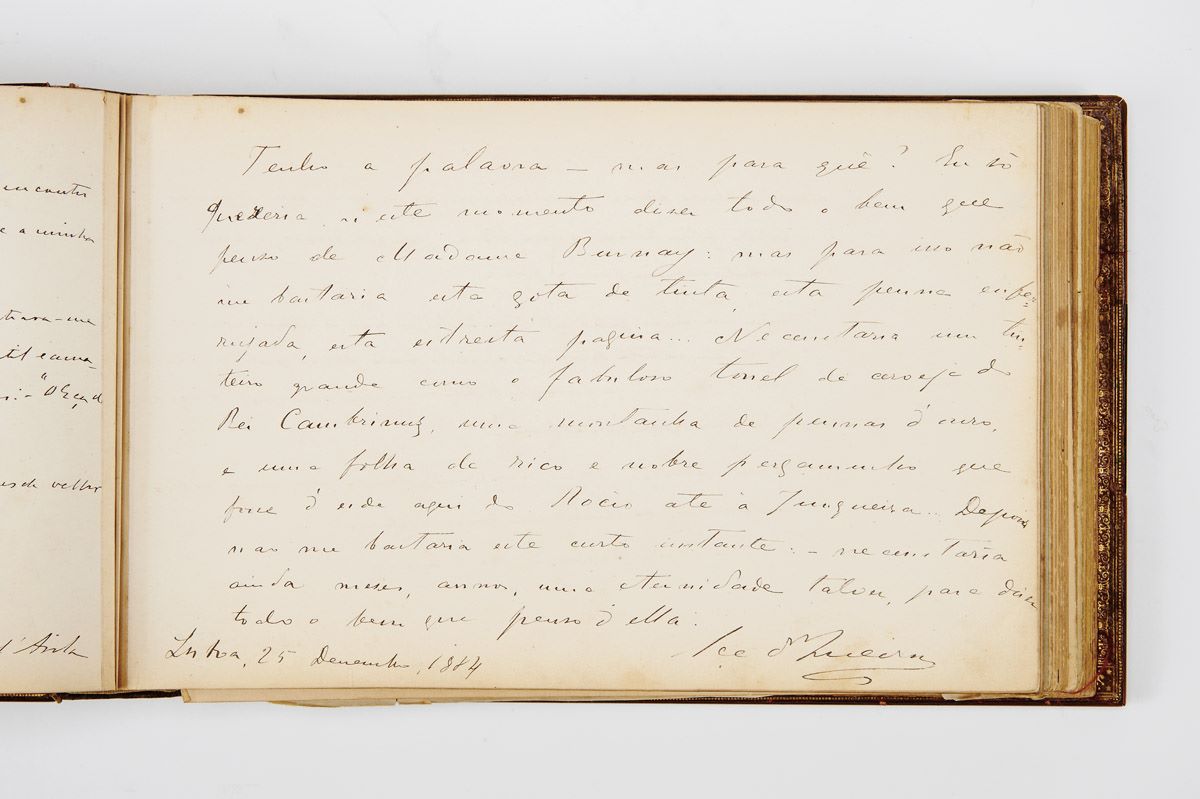 encontro
e a minha
trara-me
til e ama-
"O Eça d
d'Avila
Tenho a palavra – mas para quê? Eu só
quereria n'este momento diser todo o bem que
penso de Madame Burnay: mas para isso não
me bastaria esta gota de tinta, esta penna enfer-
rujada, esta estreita pagina... Necessitaria um tin-
teiro grande como o fabuloso tonel de cerveja do
Rei Cambrinus, uma montanha de pennas d'ouro,
e uma folha de rico e nobre pergaminho que
fosse d'esde aqui do Rocio até á Junqueira... Depois
não me bastaria este curto instante: – necessitaria
ainda meses, annos, uma eternidade talvez, para diser
todo o bem que penso d'ella.
Lisboa, 25 Dezembro, 1884
Eça d'Queiroz